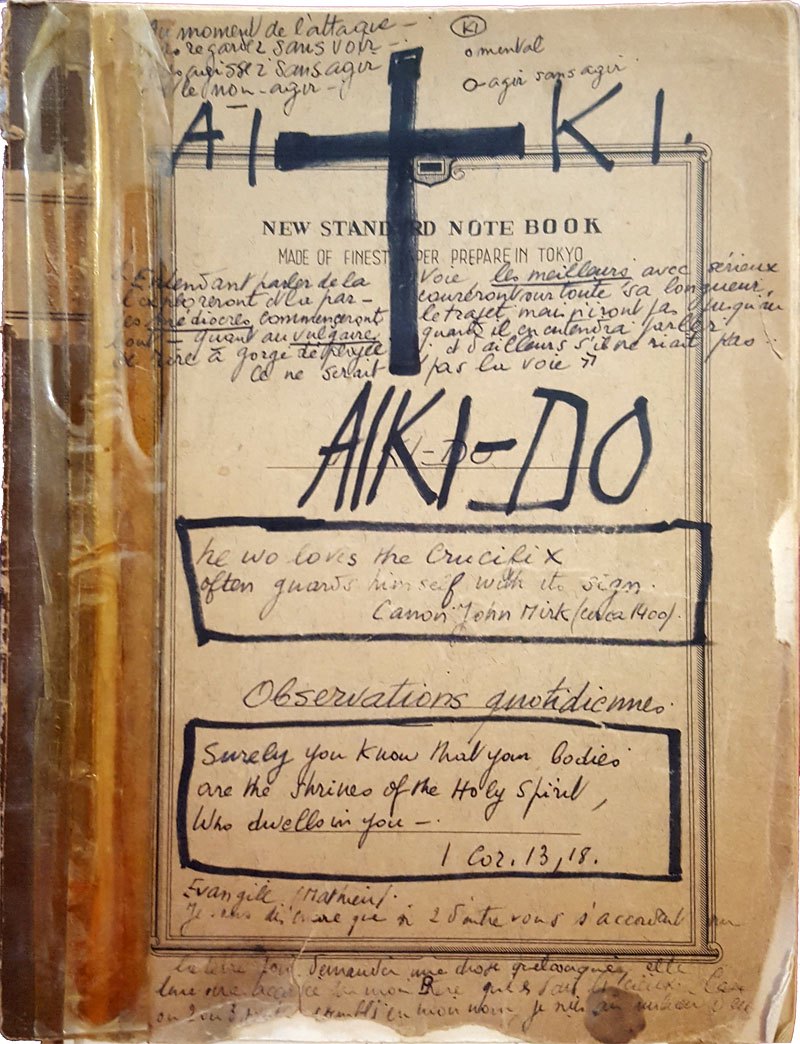 moment de l'attaque -
regardez sans voir -
agissez sans agir
le non-agir -
KI
mental
agir sans agir
AI KI.
NEW STAND RD NOTE BOOK
MADE OF FINEST PAPER PREPARE IN TOKYO
Entendant parler de la voie les meilleurs avec sérieux
l'exploreront et la par- courront sur toute sa longueur.
les médiocres commenceront le trajet mais n'iront pas jusqu'au
bout - quant au vulgaire, quand il en entendra parler
rire à gorge déployée et d'ailleurs s'il ne riait pas
ce ne serait pas la voie »
AIKI-DO
KI-DO
he wo loves the Crucifix
often guards himself with its sign.
Canon John Mirk (circa 1400).
Observations quotidiennes.
Surely you know that your bodies
are the shrines of the Holy Spirit,
Who dwells in you -.
1 Cor. 13, 18.
Evangile (Mathieu).
Je vous dis encore que si 2 d'entre vous s'accordent
la terre pour demander une chose quelconque, elle
leur sera accordée mon Père qui
ou 3 en mon nom, je suis au milieu d'eux